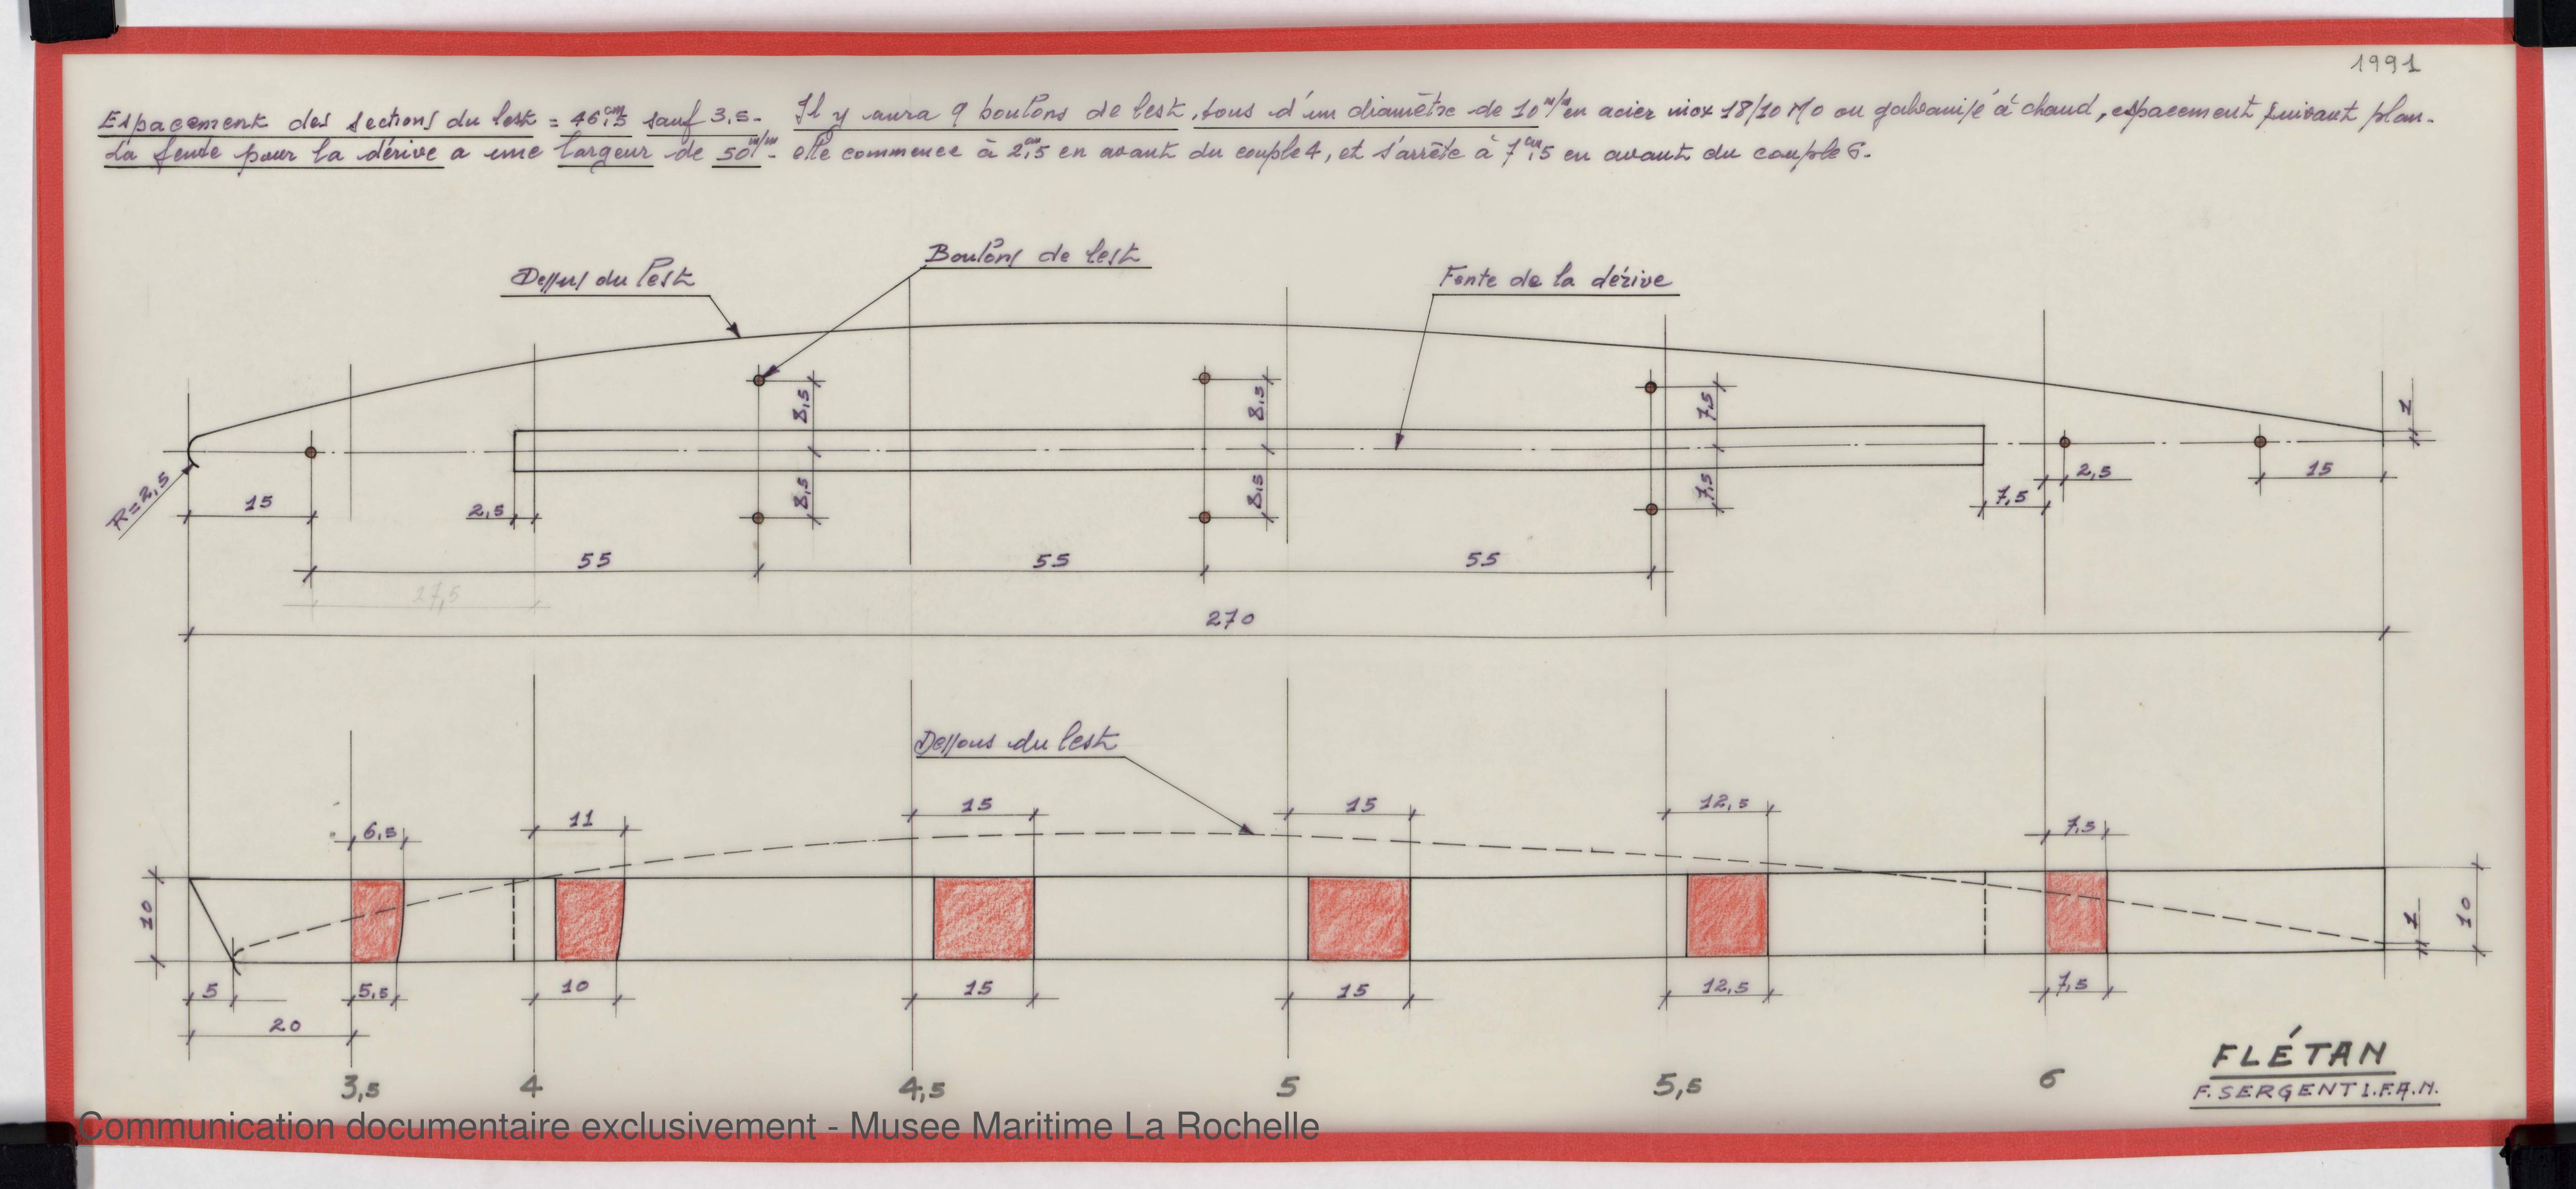 1991
Espacement des sections du lest = 46cm,5 sauf 3,5- Il y aura 9 boulons de lest, tous d'un diamètre de 10 m/m en acier inox 18/10 Mo ou galvanisé à chaud, espacement suivant plan.
La fente pour la dérive a une largeur de 50 m/m - elle commence à 2cm,5 en avant du couple 4, et s'arrête à 7cm,5 en avant du couple 6.
Boulons de lest
Dessus du lest
Fente de la dérive
8,5
8,5
7,5
1
R=2,5
15
2,5
8,5
8,5
7,5
7,5
2,5
15
55
55
55
27,5
270
Dessous du lest
6,5
11
15
15
12,5
7,5
10
1
10
5
5,5
10
15
15
12,5
7,5
20
3,5
4
4,5
5
5,5
6
FLÉTAN
F. SERGENT I.F.A.N.
Communication documentaire exclusivement - Musee Maritime La Rochelle